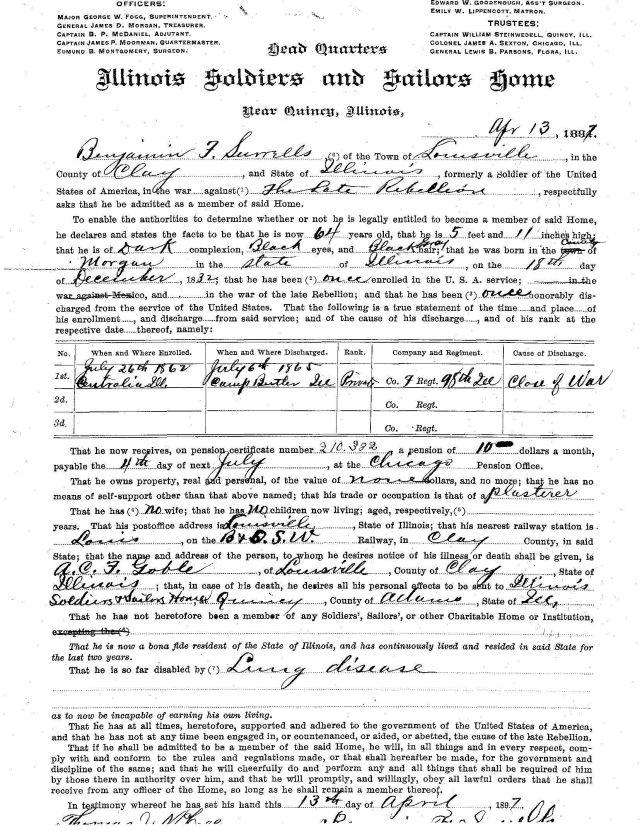 OFFICERS:
MAJOR GEORGE W. FOGG, SUPERINTENDENT.
GENERAL JAMES D. MORGAN, TREASURER.
CAPTAIN B. P. McDANIEL, ADJUTANT.
CAPTAIN JAMES P. MOORMAN, QUARTERMASTER.
EDMUND B. MONTGOMERY, SURGEON.
EDWARD W. GOODENOUGH, ASS'T SURGEON.
EMILY W. LIPPENCOTT, MATRON.
TRUSTEES:
CAPTAIN WILLIAM STEINWEDELL, QUINCY, ILL.
COLONEL JAMES A. SEXTON, CHICAGO, ILL.
GENERAL LEWIS B. PARSONS, FLORA, ILL.
Head Quarters
Illinois Soldiers and Sailors Home
Near Quincy, Illinois,
Apr 13, 1897.
Benjamin F. Surrells of the Town of Louisville, in the
County of Clay, and State of Illinois, formerly a Soldier of the United
States of America, in the war against (1) The Late Rebellion, respectfully
asks that he be admitted as a member of said Home.
To enable the authorities to determine whether or not he is legally entitled to become a member of said Home,
he declares and states the facts to be that he is now 64 years old, that he is 5 feet and 11 inches high;
that he is of Dark complexion, Black eyes, and Black gray hair; that he was born in the town of County
Morgan in the state of Illinois, on the 18th day
of December, 1832; that he has been (2) once enrolled in the U. S. A. service; in the
war against Mexico, and in the war of the late Rebellion; and that he has been (2) once honorably dis-
charged from the service of the United States. That the following is a true statement of the time and place of
his enrollment, and discharge from said service; and of the cause of his discharge, and of his rank at the
respective date thereof, namely:
No. When and Where Enrolled. When and Where Discharged. Rank. Company and Regiment. Cause of Discharge.
1st. July 26th 1862 Centralia Ill. July 6th 1865 Camp Butler Ill Private Co. F Regt. 98th Ill Close of War
2d. Co. Regt.
3d. Co. Regt.
That he now receives, on pension certificate number 210.332, a pension of 10 dollars a month,
payable the 4th day of next July, at the Chicago Pension Office.
That he owns property, real and personal, of the value of none dollars, and no more; that he has no
means of self-support other than that above named; that his trade or occupation is that of a plasterer
That he has (4) No wife; that he has No children now living; aged, respectively, (5)
years. That his postoffice address is Louisville, State of Illinois; that his nearest railway station is
Louis, on the B & O. S. W. Railway, in Clay County, in said
State; that the name and address of the person, to whom he desires notice of his illness or death shall be given, is
A. C. F. Goble, of Louisville, County of Clay, State of
Illinois; that, in case of his death, he desires all his personal effects to be sent to Illinois
Soldiers & Sailors Home, Quincy, County of Adams, State of Ill,
That he has not heretofore been a member of any Soldiers', Sailors', or other Charitable Home or Institution,
excepting the (6)
That he is now a bona fide resident of the State of Illinois, and has continuously lived and resided in said State for
the last two years.
That he is so far disabled by (7) Lung disease
as to now be incapable of earning his own living.
That he has at all times, heretofore, supported and adhered to the government of the United States of America,
and that he has not at any time been engaged in, or countenanced, or aided, or abetted, the cause of the late Rebellion.
That if he shall be admitted to be a member of the said Home, he will, in all things and in every respect, com-
ply with and conform to the rules and regulations made, or that shall hereafter be made, for the government and
discipline of the same; and that he will cheerfully do and perform any and all things that shall be required of him
by those there in authority over him, and that he will promptly, and willingly, obey all lawful orders that he shall
receive from any officer of the Home, so long as he shall remain a member thereof.
In testimony whereof he has set his hand this 13th day of April, 1897.